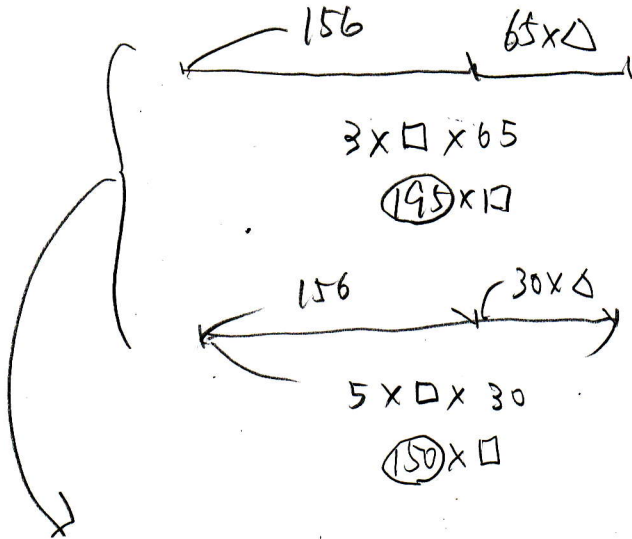 156 65×△
3×□×65
195×□
156 30×△
5×□×30
150×□